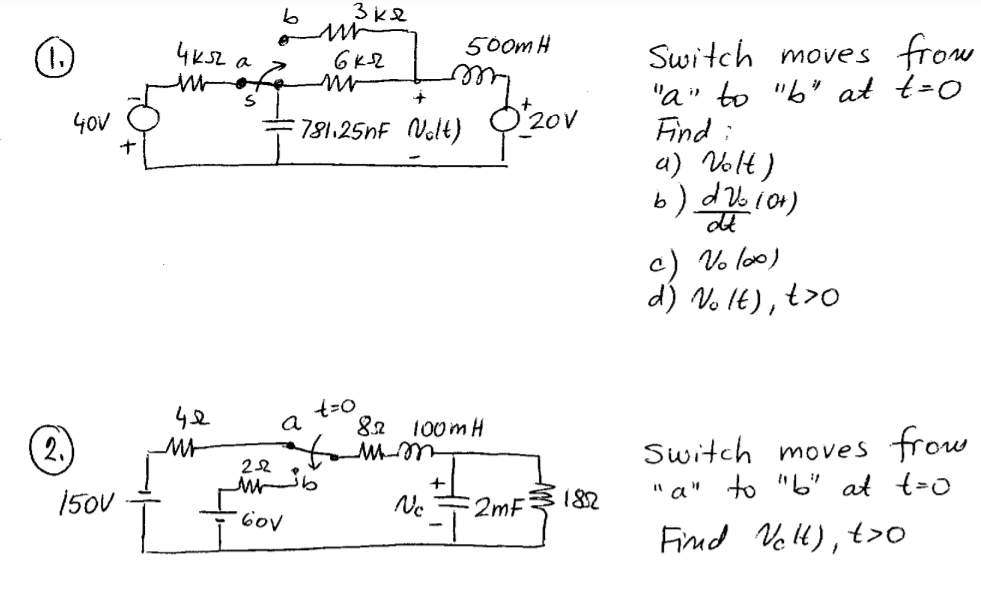 1.
b
3 kΩ
4kΩ a
6 kΩ
500mH
s
40V
-
+
781.25nF
+
Vo(t)
-
+
20V
-
Switch moves from
"a" to "b" at t=0
Find :
a) Vo(t)
b) dVo/dt (0+)
c) Vo(∞)
d) Vo(t), t>0
2.
4Ω
a
t=0
8Ω
100mH
2Ω
b
150V
60V
+
Vc
-
2mF
18Ω
Switch moves from
"a" to "b" at t=0
Find Vc(t), t>0